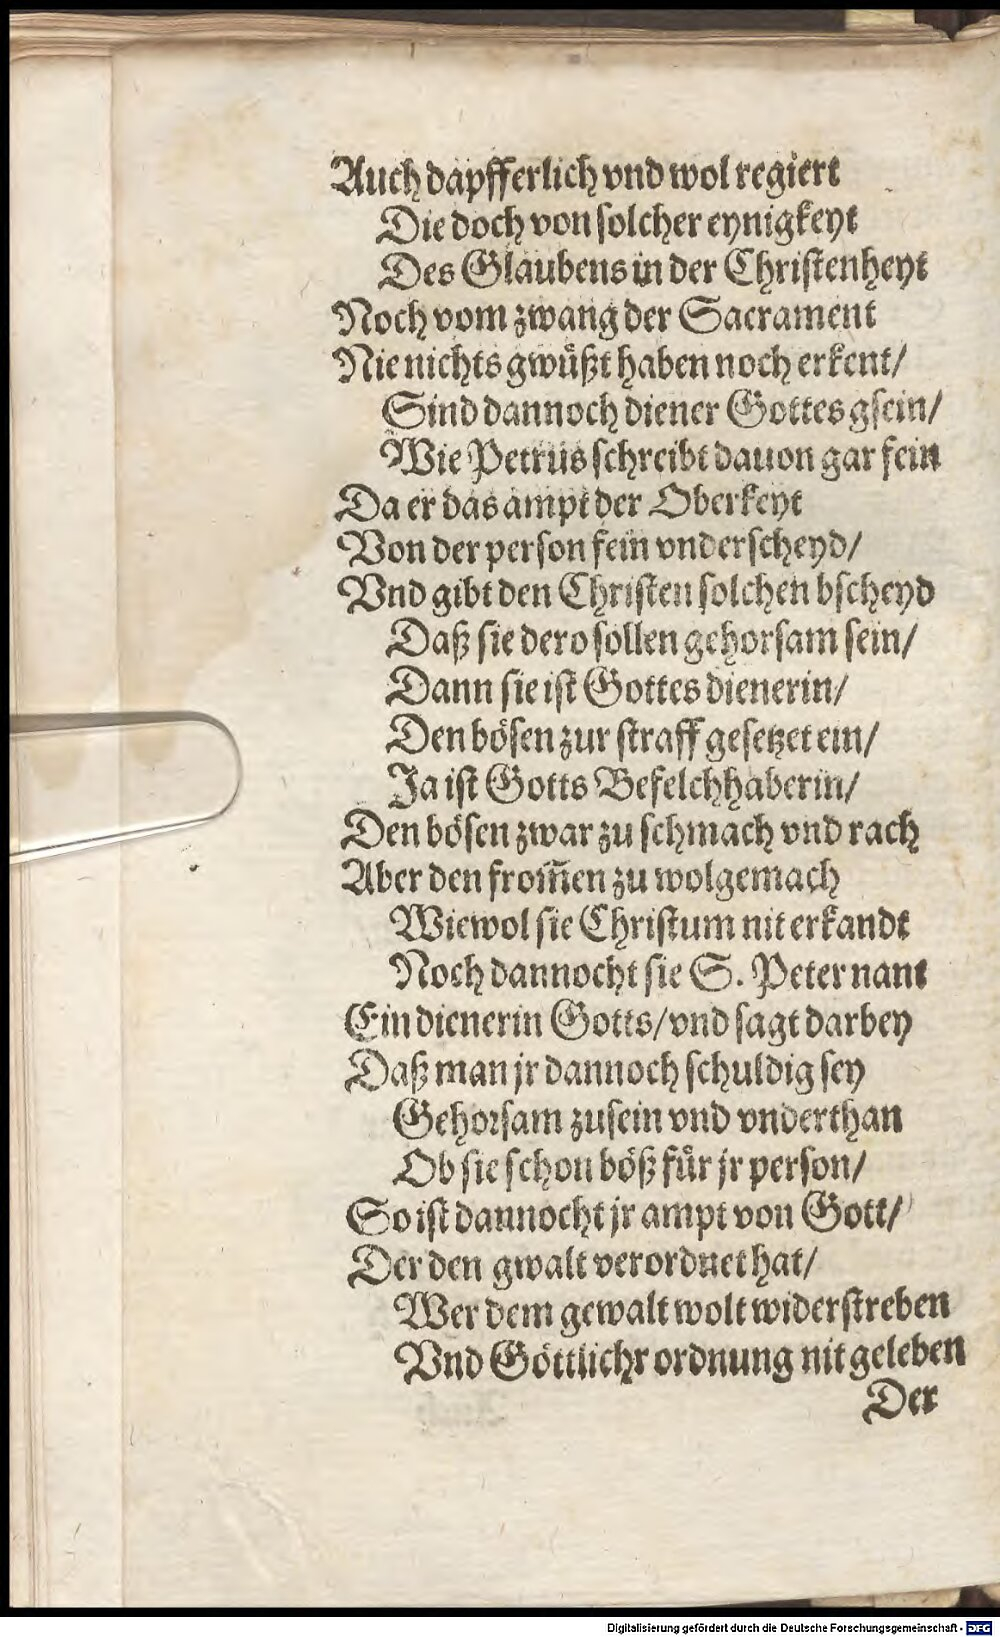 Auch dapfferlich vnd wol regiert
Die doch von solcher eynigkeyt
Des Glaubens in der Christenheyt
Noch vom zwang der Sacrament
Nie nichts gwüßt haben noch erkent/
Sind dannoch diener Gottes gsein/
Wie Petrus schreibt dauon gar fein
Da er das ampt der Oberkeyt
Von der person fein vnderscheyd/
Vnd gibt den Christen solchen bscheyd
Daß sie dero sollen gehorsam sein/
Dann sie ist Gottes dienerin/
Den bösen zur straff gesetzet ein/
Ja ist Gotts Befelchhaberin/
Den bösen zwar zu schmach vnd rach
Aber den from̃en zu wolgemach
Wiewol sie Christum nit erkandt
Noch dannocht sie S. Peter nant
Ein dienerin Gotts/ vnd sagt darbey
Daß man jr dannoch schuldig sey
Gehorsam zusein vnd vnderthan
Ob sie schon böß für jr person/
So ist dannocht jr ampt von Gott/
Der den gwalt verordnet hat/
Wer dem gewalt wolt widerstreben
Vnd Göttlichr ordnung nit geleben
Der
Digitalisierung gefördert durch die Deutsche Forschungsgemeinschaft - DFG